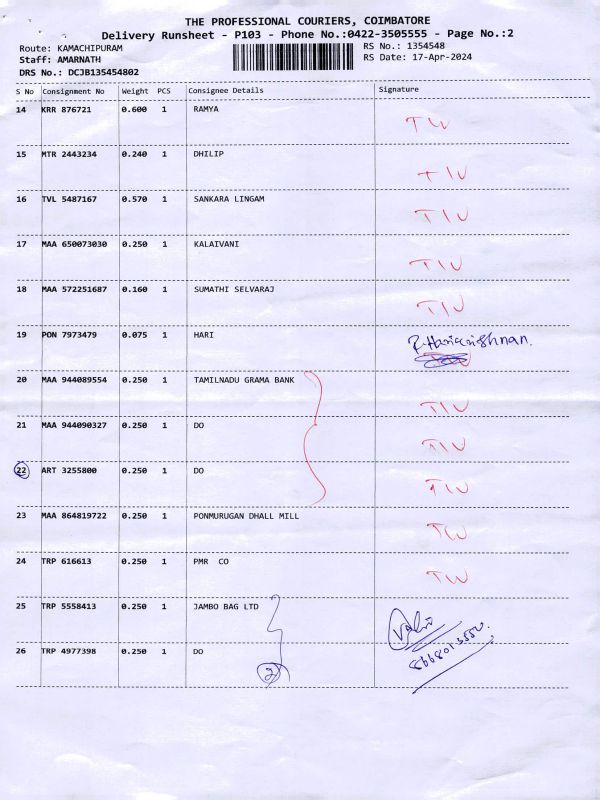 THE PROFESSIONAL COURIERS, COIMBATORE
Delivery Runsheet - P103 - Phone No.:0422-3505555 - Page No.:2
Route: KAMACHIPURAM RS No.: 1354548
Staff: AMARNATH RS Date: 17-Apr-2024
DRS No.: DCJB135454802
S No Consignment No Weight PCS Consignee Details Signature
14 KRR 876721 0.600 1 RAMYA TW
15 MTR 2443234 0.240 1 DHILIP TIU
16 TVL 5487167 0.570 1 SANKARA LINGAM TIU
17 MAA 650073030 0.250 1 KALAIVANI TIU
18 MAA 572251687 0.160 1 SUMATHI SELVARAJ TIU
19 PON 7973479 0.075 1 HARI
20 MAA 944089554 0.250 1 TAMILNADU GRAMA BANK TIU
21 MAA 944090327 0.250 1 DO TIU
22 ART 3255800 0.250 1 DO TIU
23 MAA 864819722 0.250 1 PONMURUGAN DHALL MILL TW
24 TRP 616613 0.250 1 PMR CO TW
25 TRP 5558413 0.250 1 JAMBO BAG LTD
26 TRP 4977398 0.250 1 DO 2